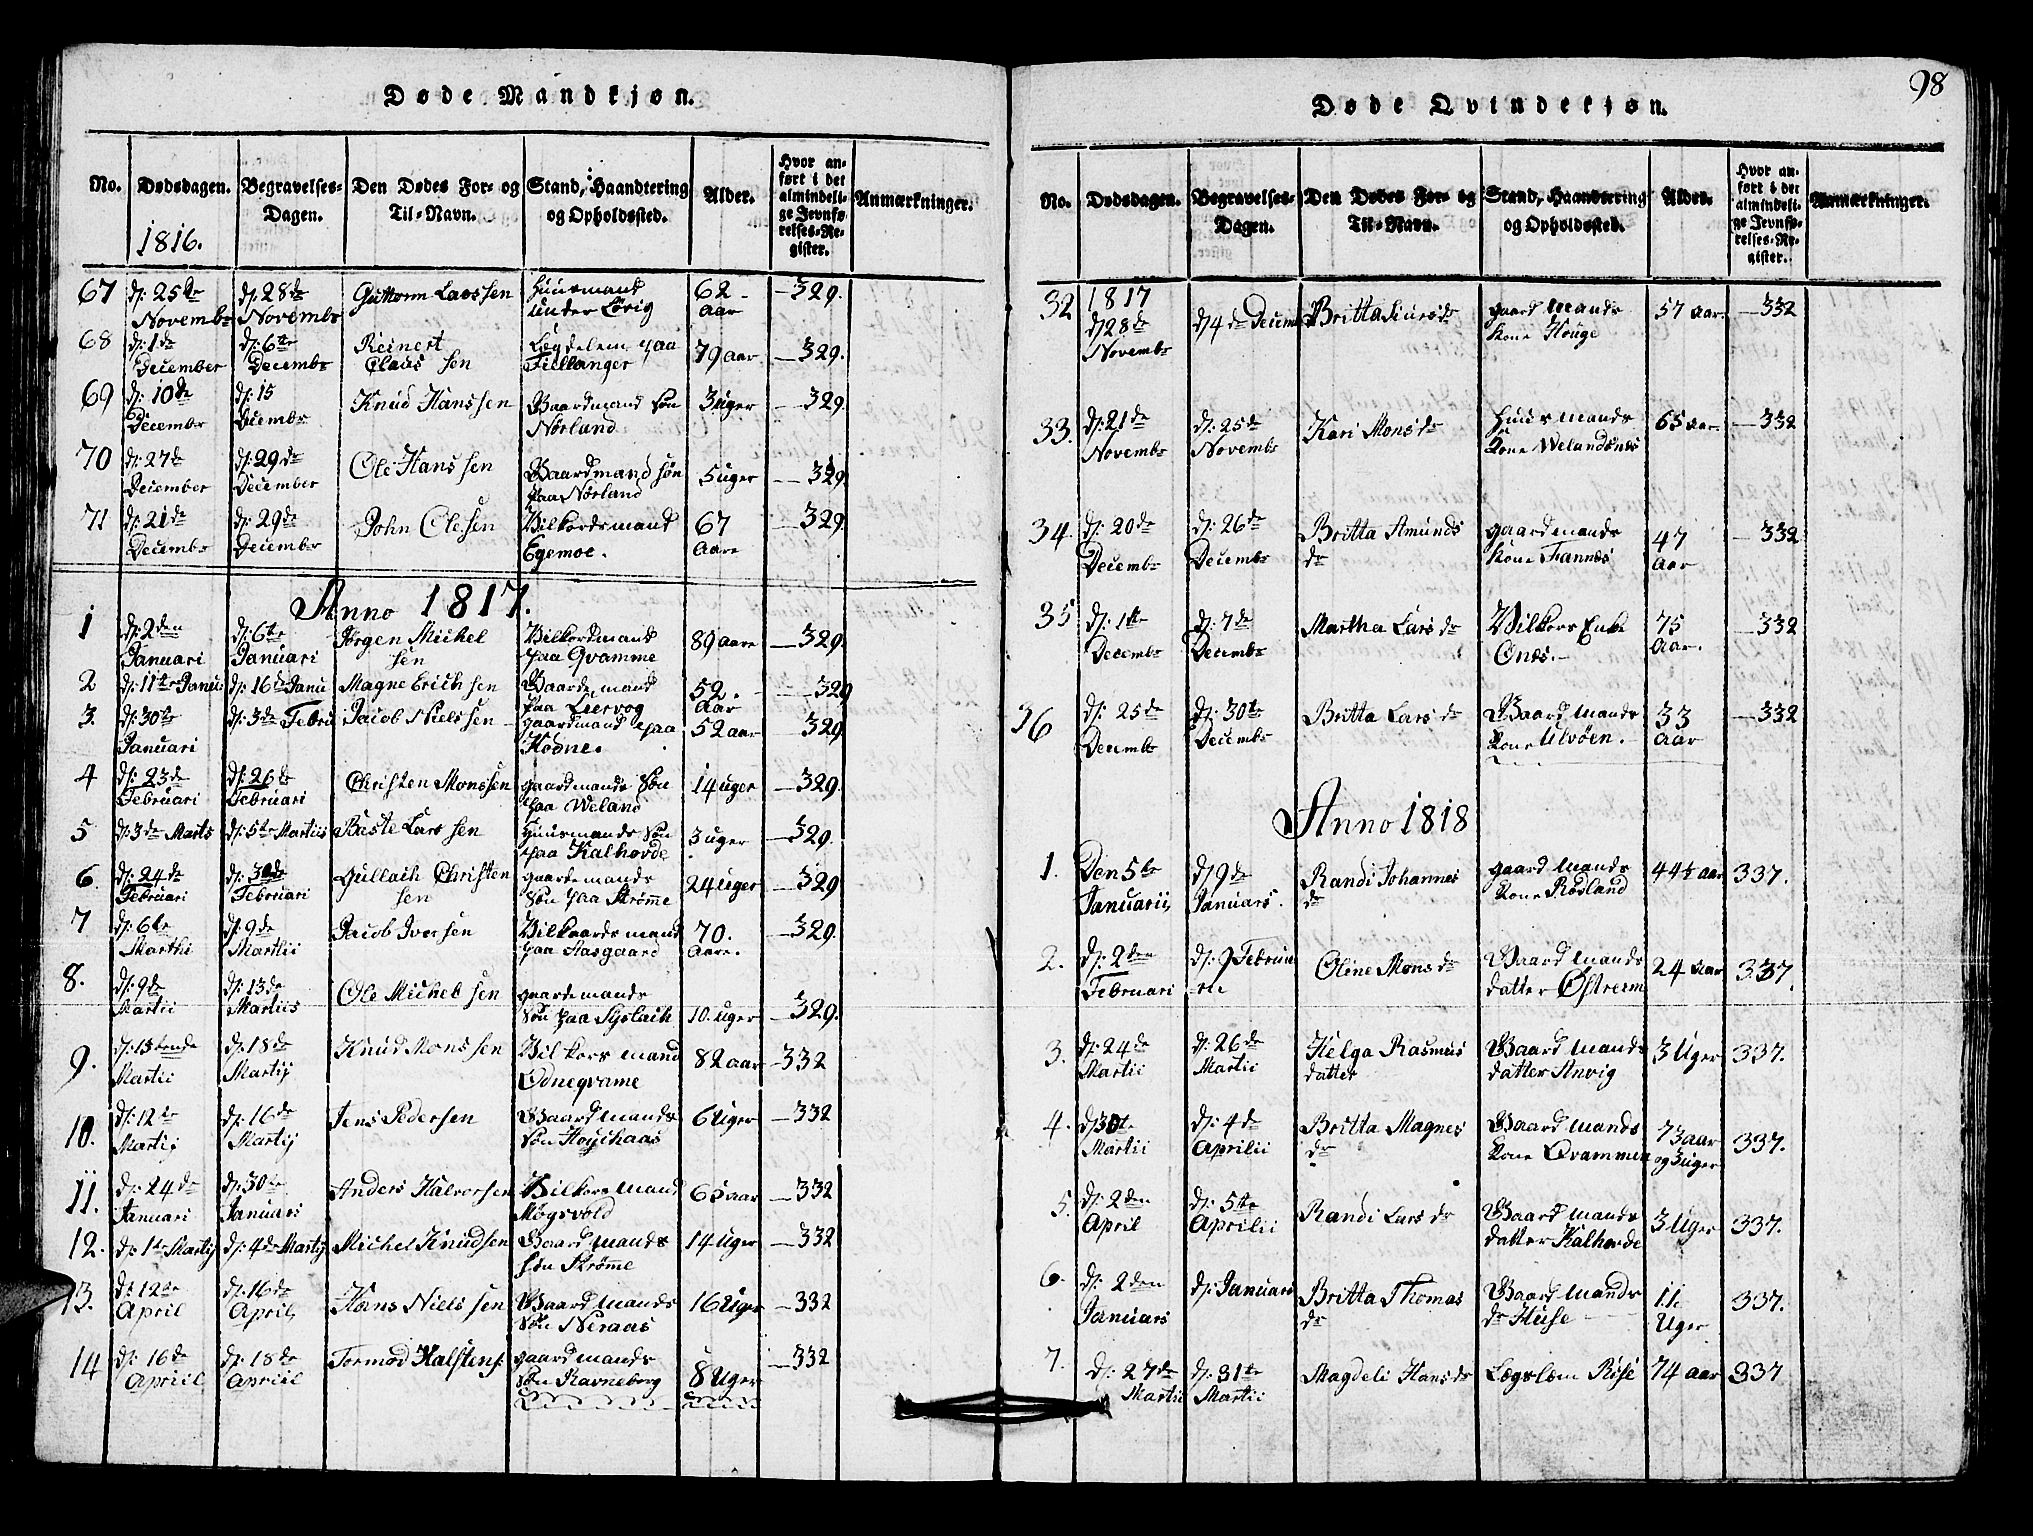 98
Døde Mandkjøn.
No. Dødsdagen. Begravelses-Dagen. Den Dødes For- og Til-Navn. Stand, Haandtering og Opholdssted. Alder. Hvor anført i det almindelige Jevnførelses-Register. Anmærkninger.
1816.
67 d: 25de Novembr d: 28de Novembr Guttorm Larssen Huusmand under Lørig 62 Aar 329.
68 d: 1de December d: 6te Decembr Reinert Claussen Lægdelem paa Fiellanger 79 aar 329.
69 d: 10de Decembr d: 15 Decembr Knud Hanssen Baardmand søn Nørland 3 uger 329.
70 d: 27de December d: 29de December Ole Hanssen Baardmand søn paa Nørland 5 uger 329
71 d: 21de Decembr d: 29de Decembr John Olessen Vilkordsmand Egemoe. 67 Aar 329
Anno 1817.
1 d: 2den Januari d: 6te Januari Jørgen Michelsen Vilkordmand paa Qvamme 89 aar 329.
2 d: 11te Janua d: 16de Janu Magne Erichsen Baardemand paa Leervog 52. Aar 329
3. d: 30te Januari d: 3de Febru Jacob Nielssen gaardmand paa Hodne. 52 aar 329
4 d: 23de Februari d: 26de Februari Christen Monssen gaardmands Søn paa Weland 14 uger 329.
5 d: 3de Marts d: 5te Martiis Baste Larssen Huusmands Søn paa Kalhovde 3 uger 329.
6. d: 24de Februari d: 30de Februari Gullach Christensen gaardemands Søn paa Strømme 24 uger 329
7 d: 6te Marthi d: 9de Marthii Jacob Iversen Vilkaardsmand paa Aasgaard 70. Aar. 329.
8. d: 9de Martii d: 13de Martiis Ole Michelsen gaardemands Søn paa Syslach 10. uger 329.
9. d: 13tende Martii d: 18de Martij Knud Monssen Vilkors mand Odneqvame 82 aar 332
10. d: 12te Martij d: 16de Martij Jens Pedersen Baardmands Søn Høyihaas 6 Uger 332
11. d: 24de Januari d: 30te Januari Anders Halvorsen Vilkors mand Møgsvold 65 aar 332
12. d: 1t Martij d: 4de Martij Michel Knudsen Baardmands søn Strømme 14 Uger 332
13. d: 12te April d: 16de April Hans Nielssen Baardmands Søn Neraas 16 Uger 332
14 d: 16de Apriil d: 18de Apriil Tormod Halstens: gaardmands Søn Ravneberg 8 Uger 332
Døde Qvindekjøn.
No. Dødsdagen. Begravelses-Dagen. Den Dødes For- og Til-Navn. Stand, Haandtering og Opholdssted. Alder. Hvor anført i det almindelige Jevnførelses-Register. Anmærkninger.
1817
32 d 28de Novembr d 4de Decemb Britta Siursdr gaard mands kone Houge 57 aar. 332
33. d: 21de Novembr d: 25de Novembr Kari Monsdr Huusmands kone Welandsnes 65 aar. 332
34. d: 20de Decembr d: 26de Decembr Britta Amundsdr gaardmands kone Fannes 47 Aar 332
35 d: 1te Decembr d: 7de Decembr Martha Larsdr Vilkors Enke Ones. 75 Aar. 332
36 d: 25de Decembr d: 30te Decembr Britta Larsdr Baardmands kone Ulvøen. 33 Aar 332
Anno 1818
1. Den 5te Januarii d 9de Januars. Randi Johannesdr gaardmands kone Rødland 44½ aar 337.
2. d: 2den Februari d: 9 Februarie Oline Monsdr Baardmands datter Østreim 24 Aar 337.
3. d: 24de Martii d: 26de Martii Helga Rasmus datter Baardmands datter Anvig 3 Uger 337.
4. d 30te Martii d: 4de Aprilii Britta Magnesdr Baardmands kone Qvammen 73 aar og 3 uger 337.
5. d: 2den April d: 5te Aprilii Randi Larsdr Baardmands datter Kalhovde 3 Uger 337.
6. d: 2den Januars d: Januars Britta Thomasdr Baardmands dr Huse 11 Uger 337.
7. d: 27de Martii d: 31te Martii Magdeli Hansdr Lægslem Røse 74 aar 337